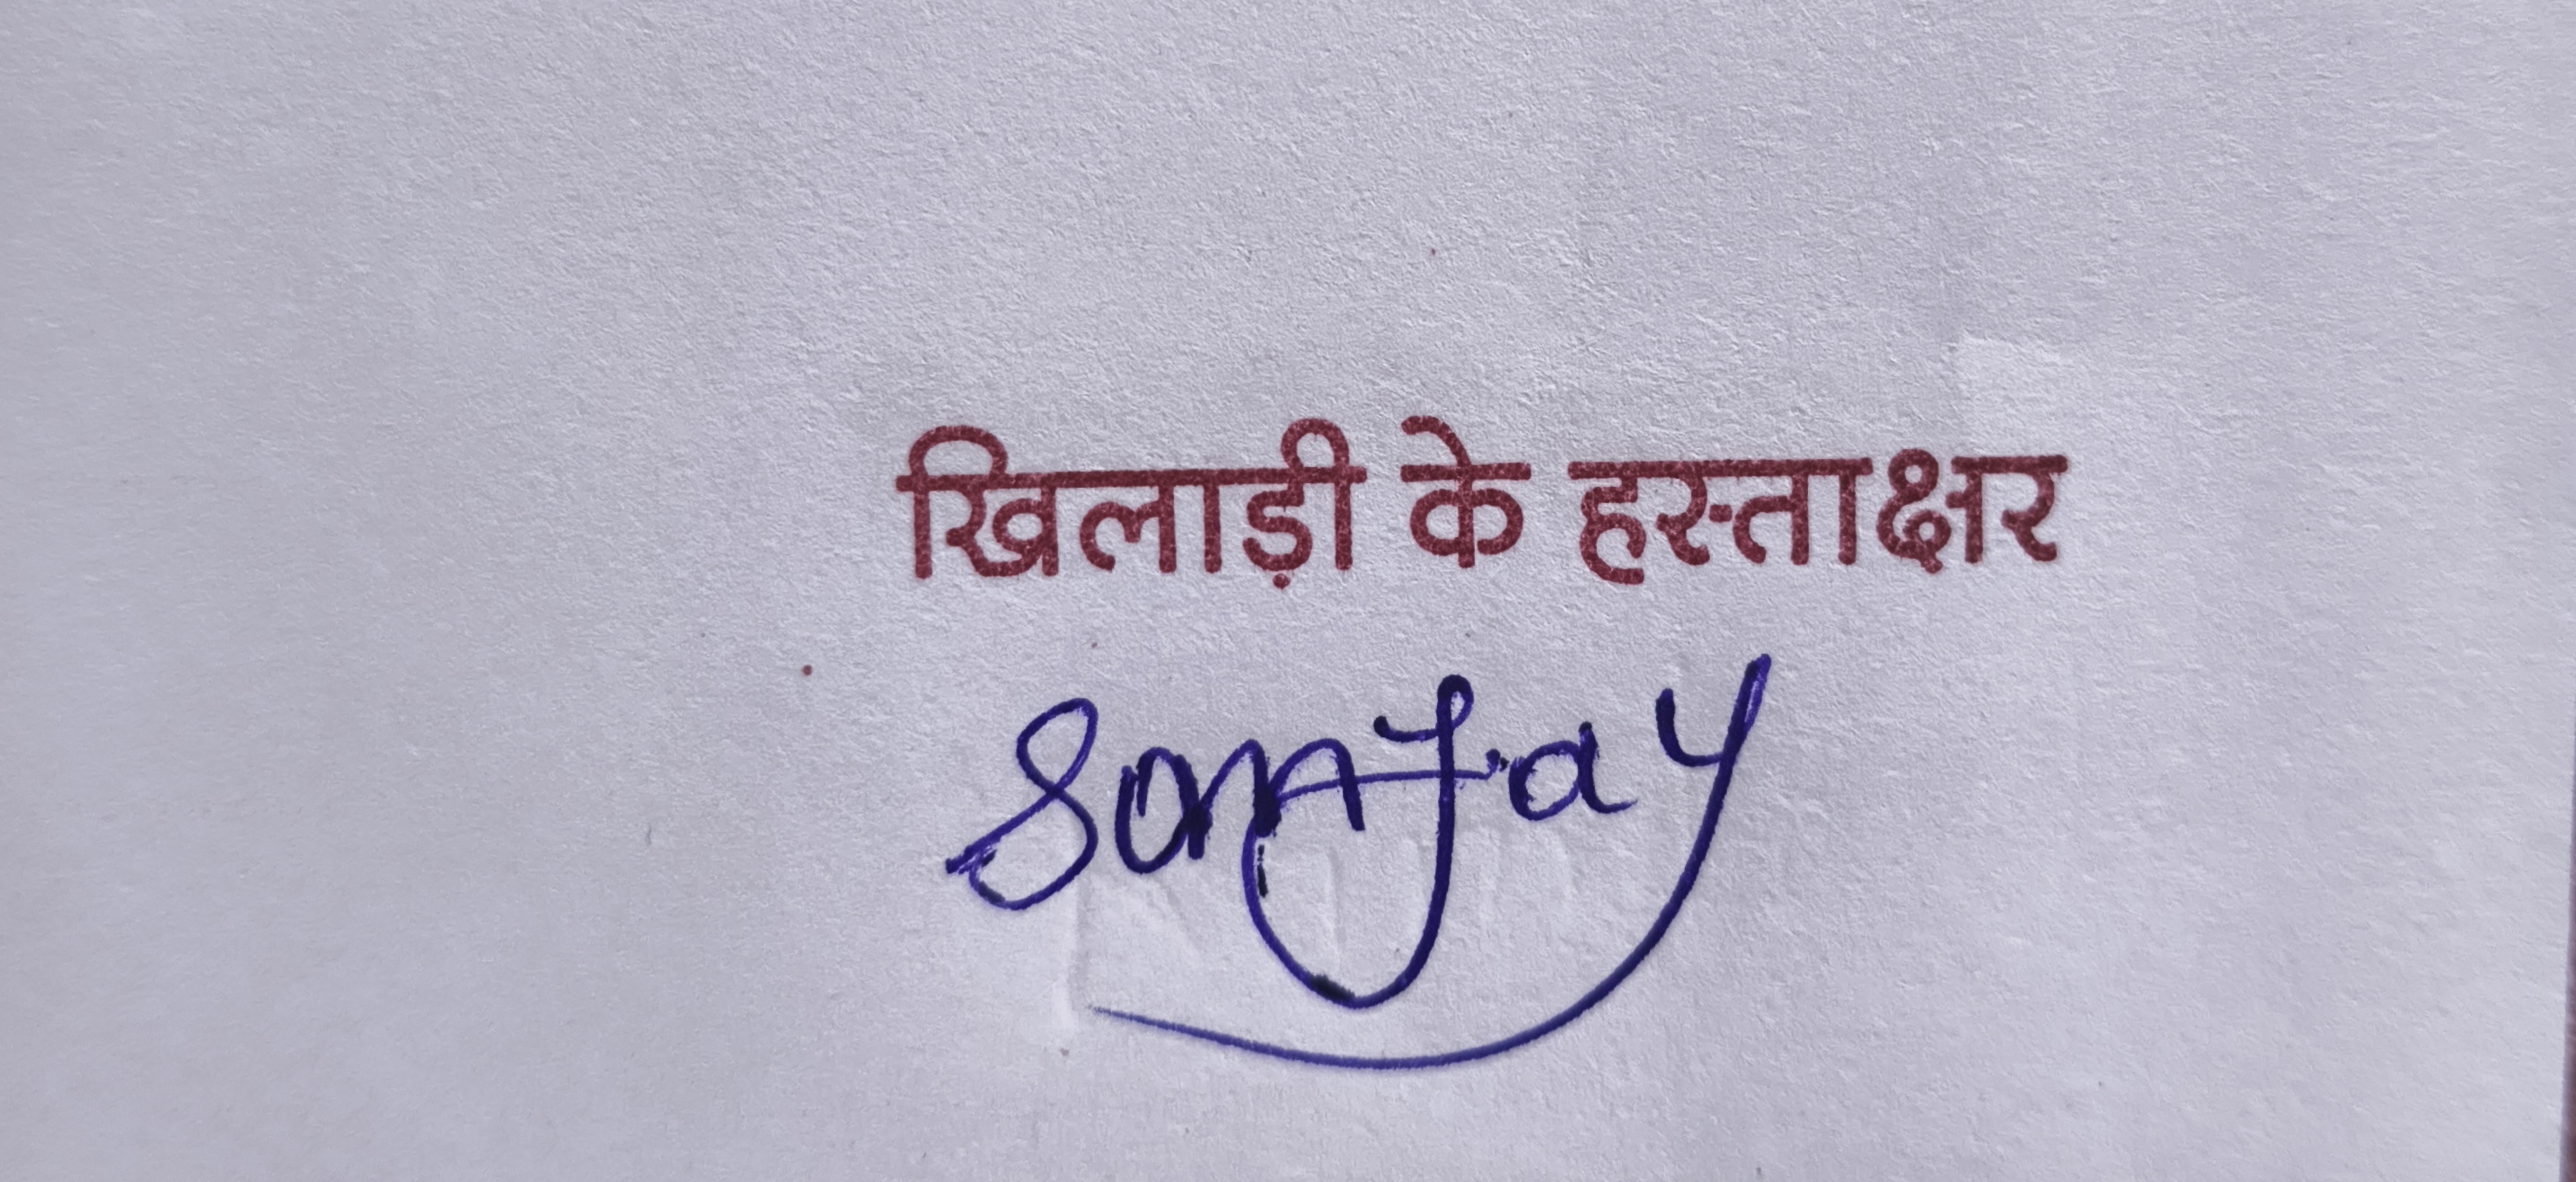 खिलाड़ी के हस्ताक्षर
Sanjay